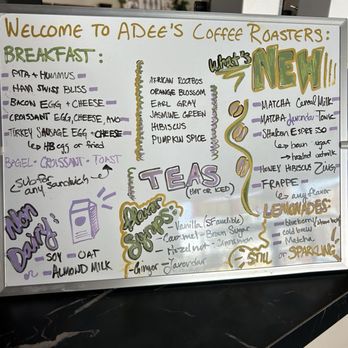 WELCOME TO ADEE'S COFFEE ROASTERS:
BREAKFAST:
PITA + HUMMUS
HAM SWISS BLISS
BACON EGGS + CHEESE
CROISSANT EGG, CHEESE, AVO
TURKEY SAUSAGE EGG + CHEESE
HB egg or fried
BAGEL - CROISSANT - TOAST
sub for any sandwich
AFRICAN ROOIBOS
ORANGE BLOSSOM
EARL GRAY
JASMINE GREEN
HIBISCUS
PUMPKIN SPICE
TEAS
(HOT OR ICED)
What's
NEW!!!
MATCHA Cereal Milk
MATCHA Lavender Tonic
Shaken ESPRESSO
brown sugar
HONEY HIBISCUS ZINGER
FRAPPE
any flavor
LEMONADES:
blueberry
cold brew
Matcha
STILL or SPARKLING
Non Dairy:
SOY OAT
ALMOND MILK
Flavor Syrups:
Vanilla (SF available)
Caramel - Brown Sugar
Hazelnut - Cinnamon
Ginger - Lavender